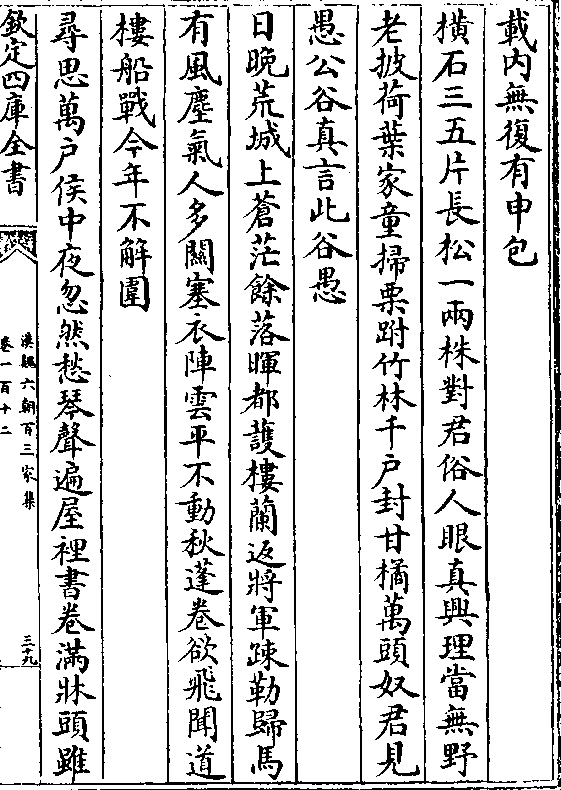 載内無復有申包
橫石三五片長松一兩株對君俗人眼真興理當無野
老披荷葉家童掃栗跗竹林千户封甘橘萬頭奴君見
愚公谷真言此谷愚
日晚荒城上蒼茫餘落暉都護樓蘭返將軍疎勒歸馬
有風塵氣人多關塞衣陣雲平不動秋蓬卷欲飛聞道
樓船戰今年不解圍
尋思萬户侯中夜忽然愁琴聲遍屋裡書卷滿牀頭雖
欽定四庫全書
漢魏六朝百三家集
卷一百十二
三十九